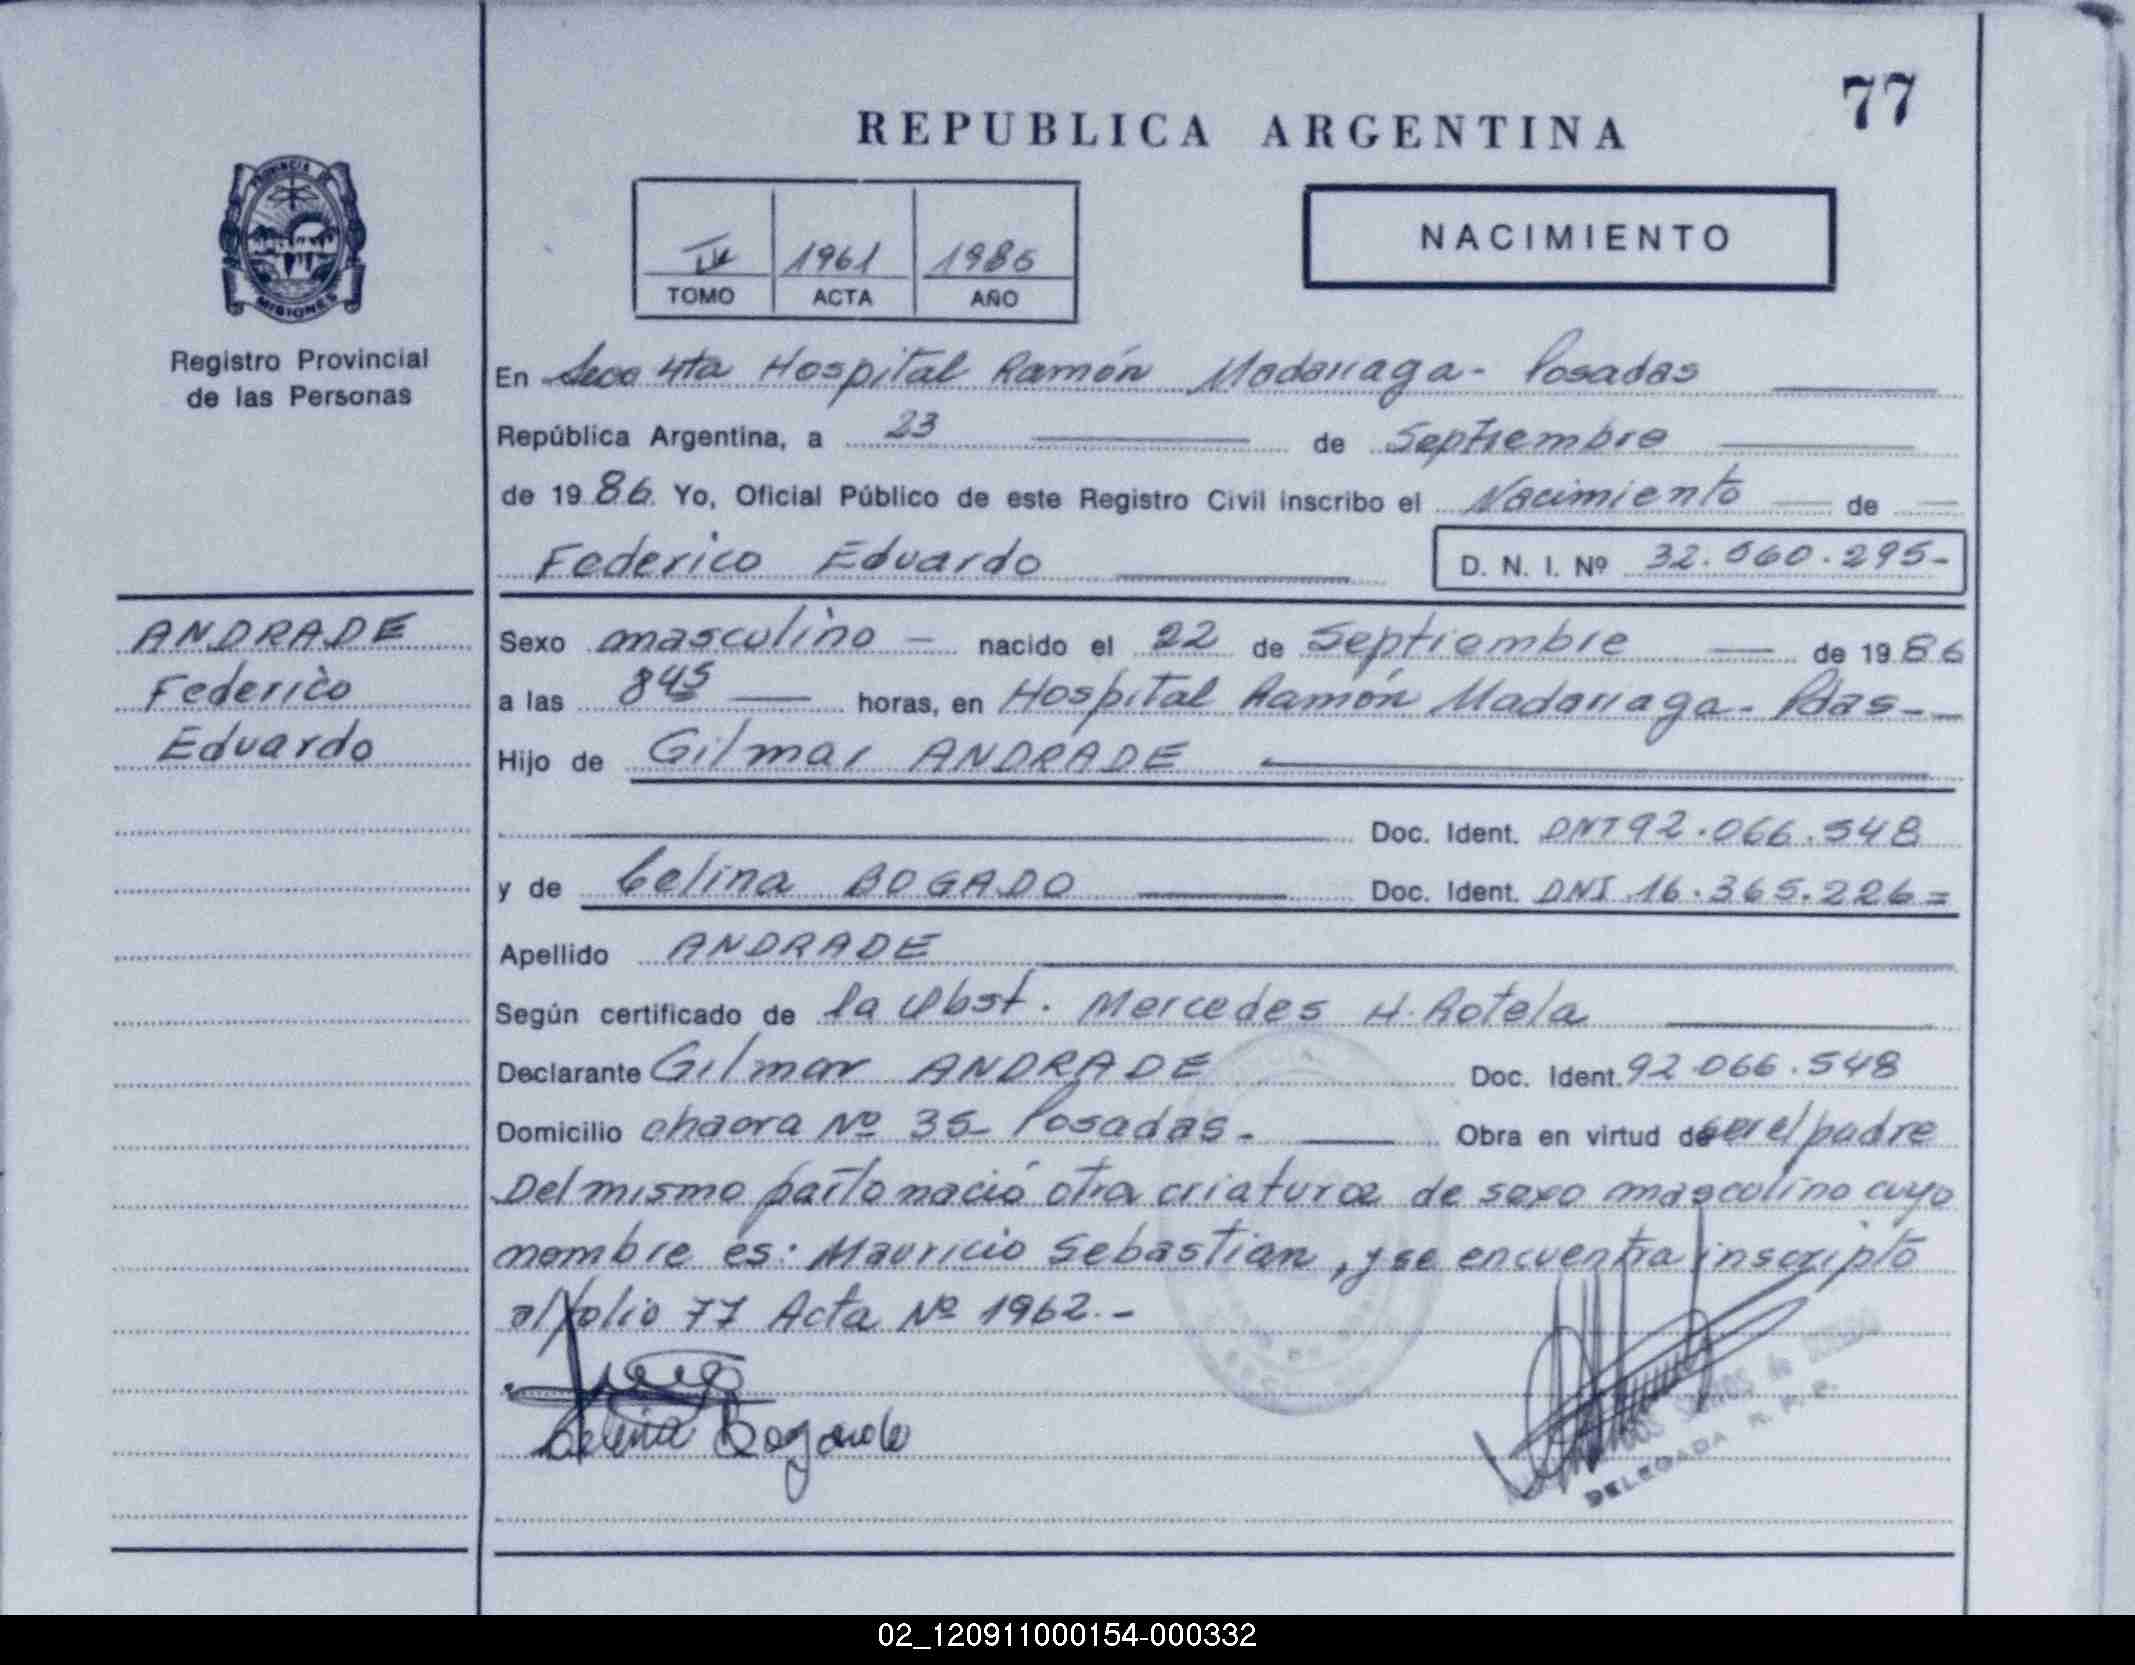 77
REPUBLICA ARGENTINA
PROVINCIA DE
MISIONES
Registro Provincial
de las Personas
IV 1961 1986
TOMO ACTA AÑO
NACIMIENTO
En Secc 4ta Hospital Ramón Madariaga - Posadas
República Argentina, a 23 de Septiembre
de 19 86. Yo, Oficial Público de este Registro Civil inscribo el Nacimiento de
Federico Eduardo D. N. I. Nº 32.560.295-
ANDRADE
Federico
Eduardo
Sexo masculino - nacido el 22 de Septiembre de 19 86
a las 845 horas, en Hospital Ramón Madariaga - Pdas-
Hijo de Gilmar ANDRADE
Doc. Ident. DNI 92.066.548
y de Celina BOGADO Doc. Ident. DNI 16.365.226=
Apellido ANDRADE
Según certificado de la Obst. Mercedes H. Rotela
Declarante Gilmar ANDRADE Doc. Ident. 92.066.548
Domicilio chacra Nº 35- Posadas- Obra en virtud de ser el padre
Del mismo parto nació otra criatura de sexo masculino cuyo
nombre es: Mauricio Sebastian, y se encuentra inscripto
al folio 77 Acta Nº 1962.-
Celina Bogado
DELEGADA R. P. P.
02_120911000154-000332